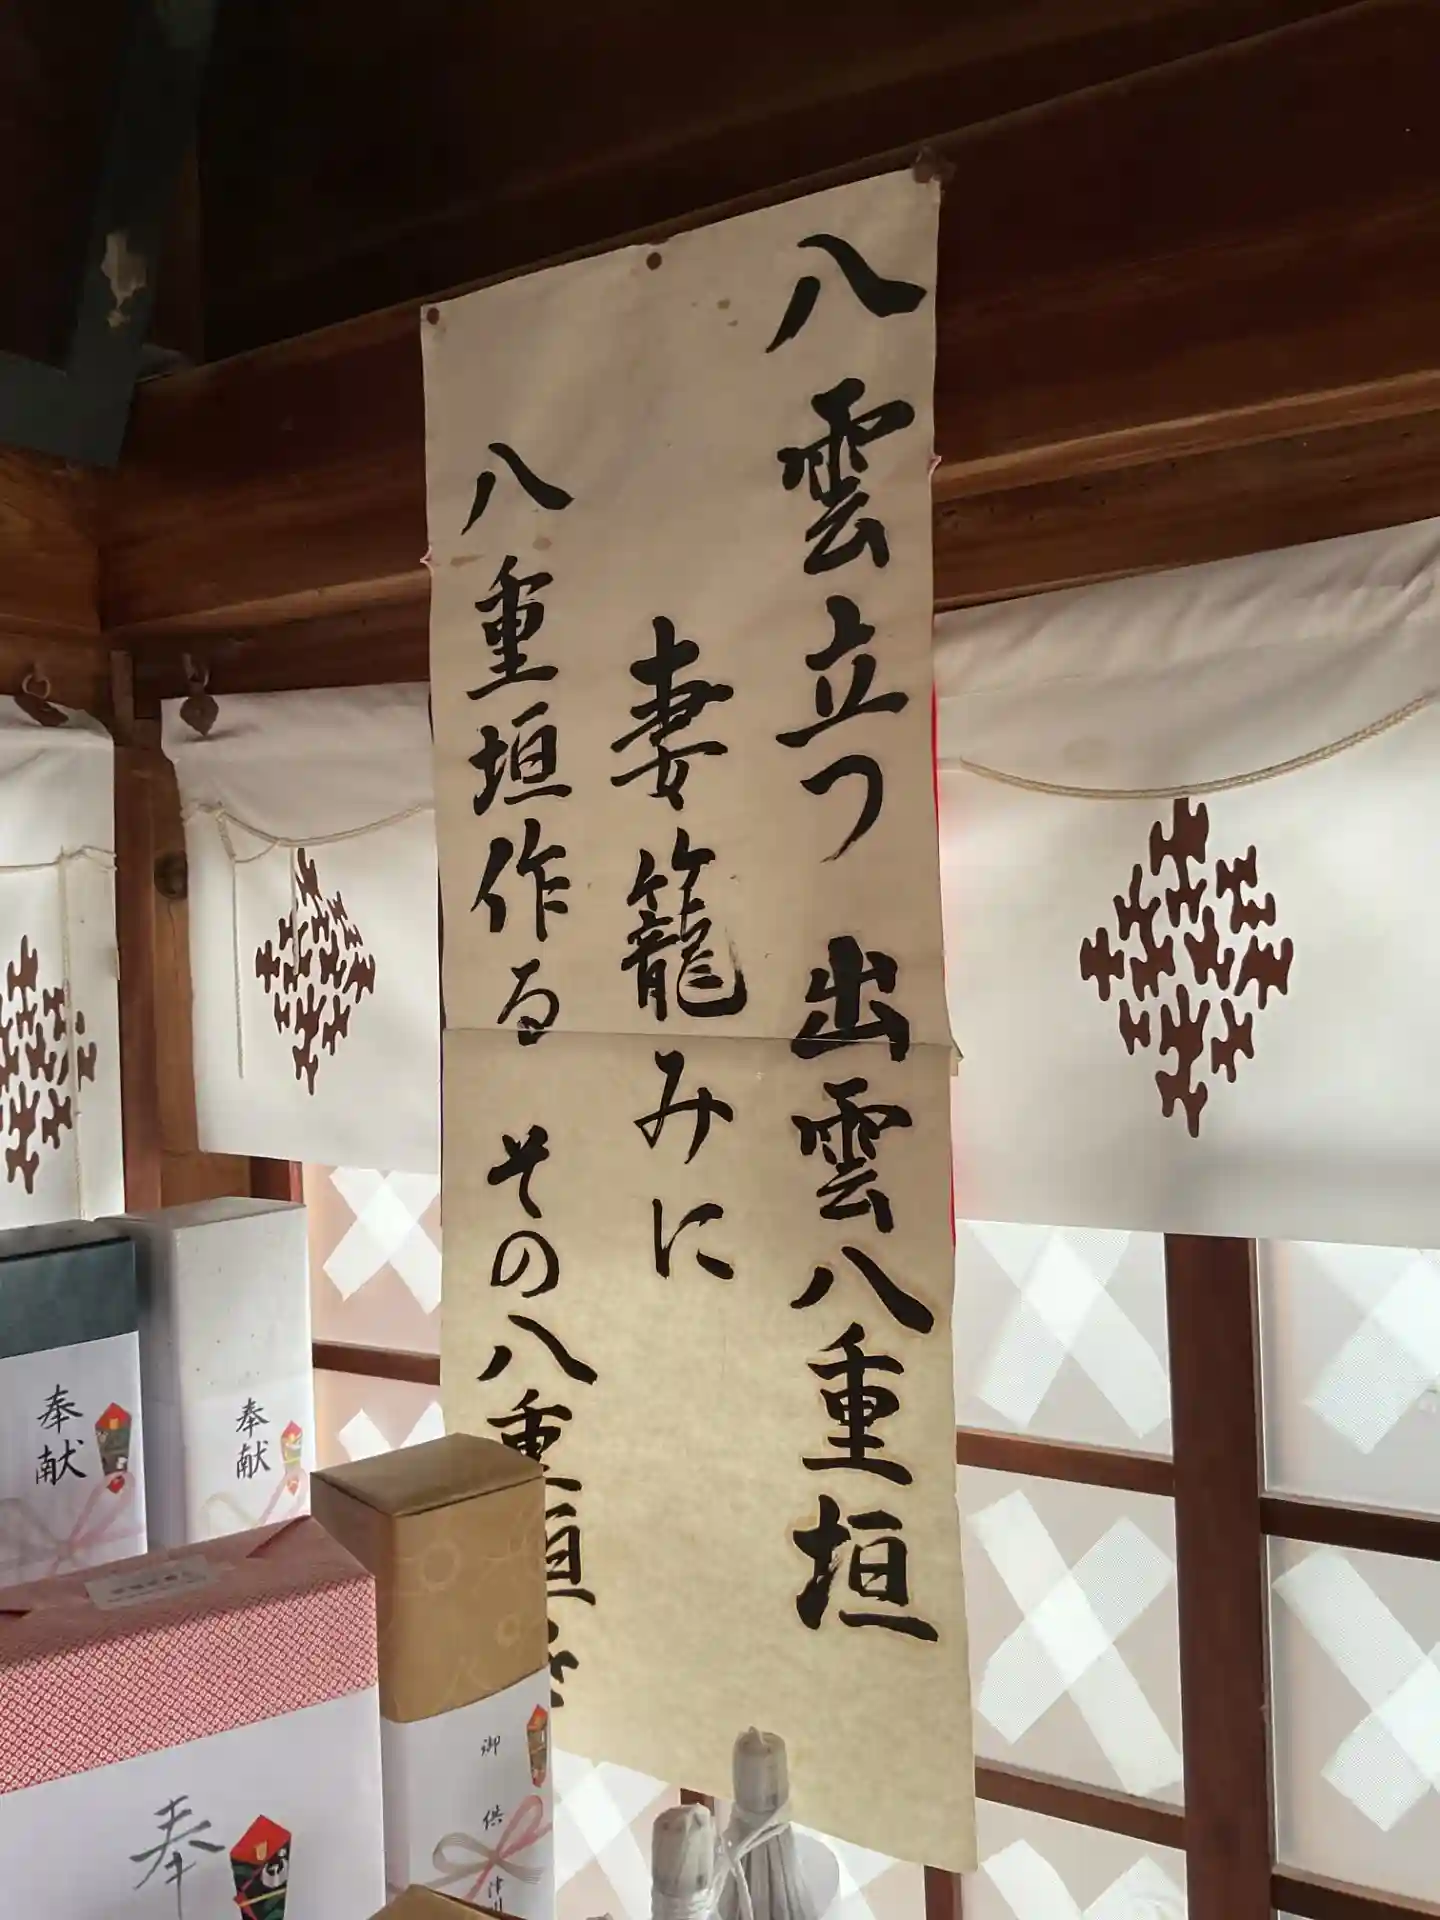 八雲立つ 出雲八重垣
妻籠みに
八重垣作る その八重垣を
奉献
奉献
奉
御供